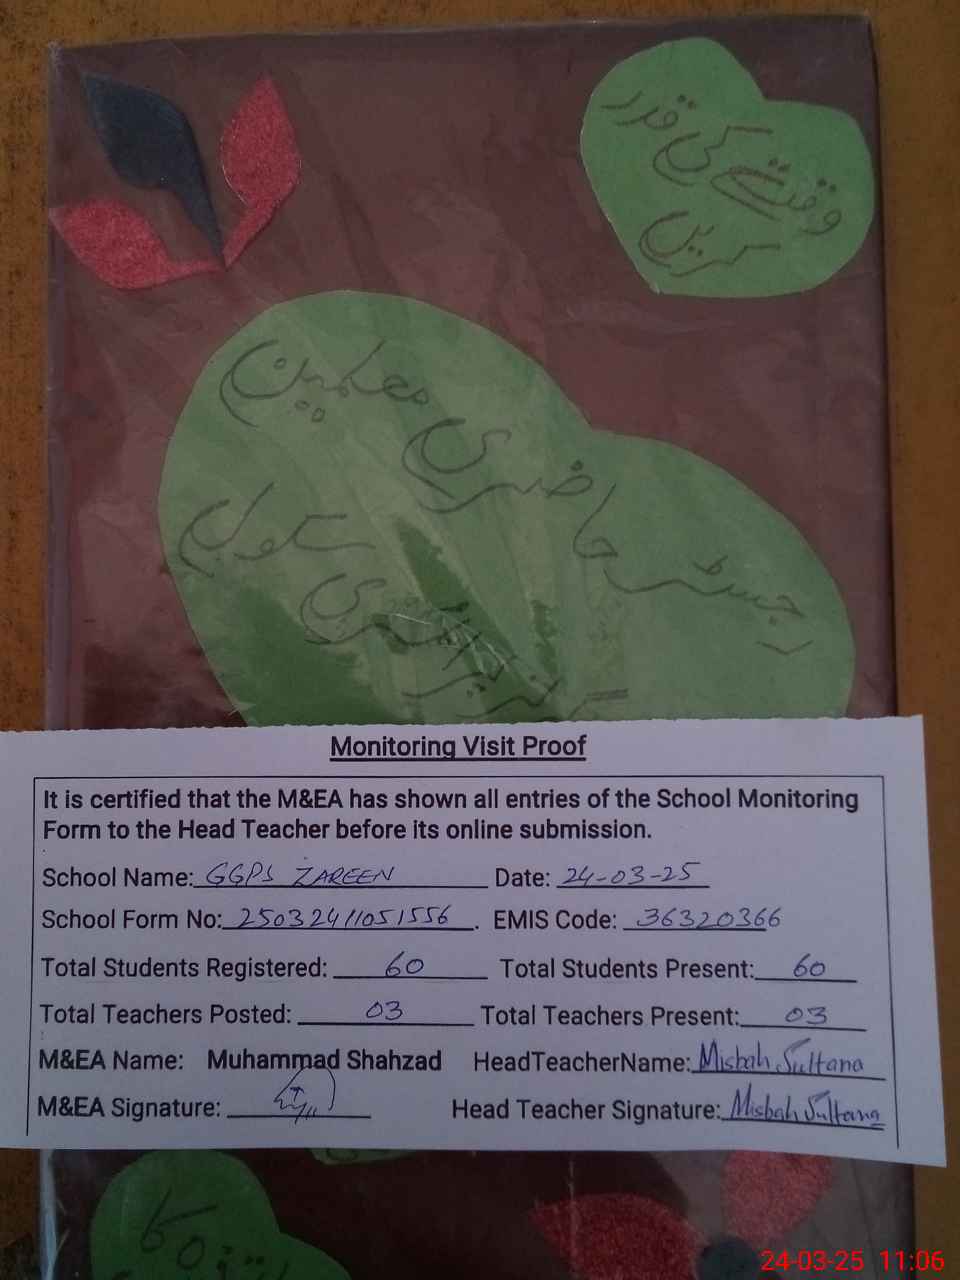 وقت کی قدر
کریں
رجسٹر حاضری معلمین
پرائمری سکول
Monitoring Visit Proof
It is certified that the M&EA has shown all entries of the School Monitoring
Form to the Head Teacher before its online submission.
School Name: GGPS ZAREEN Date: 24-03-25
School Form No: 25032411051556. EMIS Code: 36320366
Total Students Registered: 60 Total Students Present: 60
Total Teachers Posted: 03 Total Teachers Present: 03
M&EA Name: Muhammad Shahzad HeadTeacherName: Misbah Sultana
M&EA Signature: Head Teacher Signature: Misbah Sultana
24-03-25 11:06